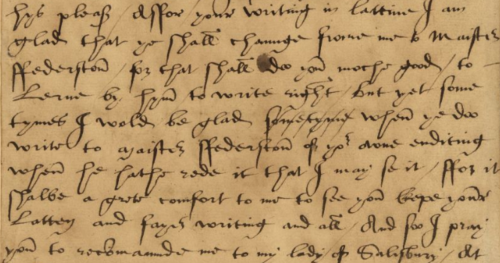 hys pleasr / As for your writing in lattine I am
glad that ye shall chaunge frome me to Maister
ffederston / for that shall doo you moche good / to
Lerne by hym to write right / but yet some
tymes I wold be glad sometyme when ye doo
write to maister ffederston of yor owne enditing
when he hathe rede it that I may se it / ffor it
shalbe a grete comfort to me to see you kepe your
Latten and fayer writing and all / And soo I pray
you to recommaunde me to my lady of Salisbury / At